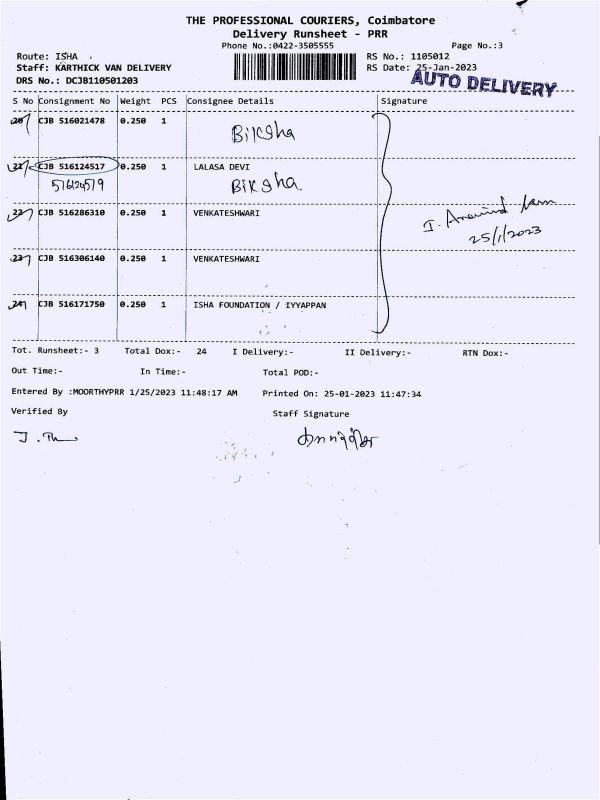 THE PROFESSIONAL COURIERS, Coimbatore
Delivery Runsheet - PRR
Phone No.:0422-3505555
Page No.:3
Route: ISHA
RS No.: 1105012
Staff: KARTHICK VAN DELIVERY
RS Date: 25-Jan-2023
DRS No.: DCJB110501203
AUTO DELIVERY
S No Consignment No Weight PCS Consignee Details Signature
20 CJB 516021478 0.250 1
Biksha
21 CJB 516124517 0.250 1 LALASA DEVI
516124519 Biksha
22 CJB 516286310 0.250 1 VENKATESHWARI
25/1/2023
23 CJB 516306140 0.250 1 VENKATESHWARI
24 CJB 516171750 0.250 1 ISHA FOUNDATION / IYYAPPAN
Tot. Runsheet:- 3 Total Dox:- 24 I Delivery:- II Delivery:- RTN Dox:-
Out Time:- In Time:- Total POD:-
Entered By :MOORTHYPRR 1/25/2023 11:48:17 AM Printed On: 25-01-2023 11:47:34
Verified By Staff Signature